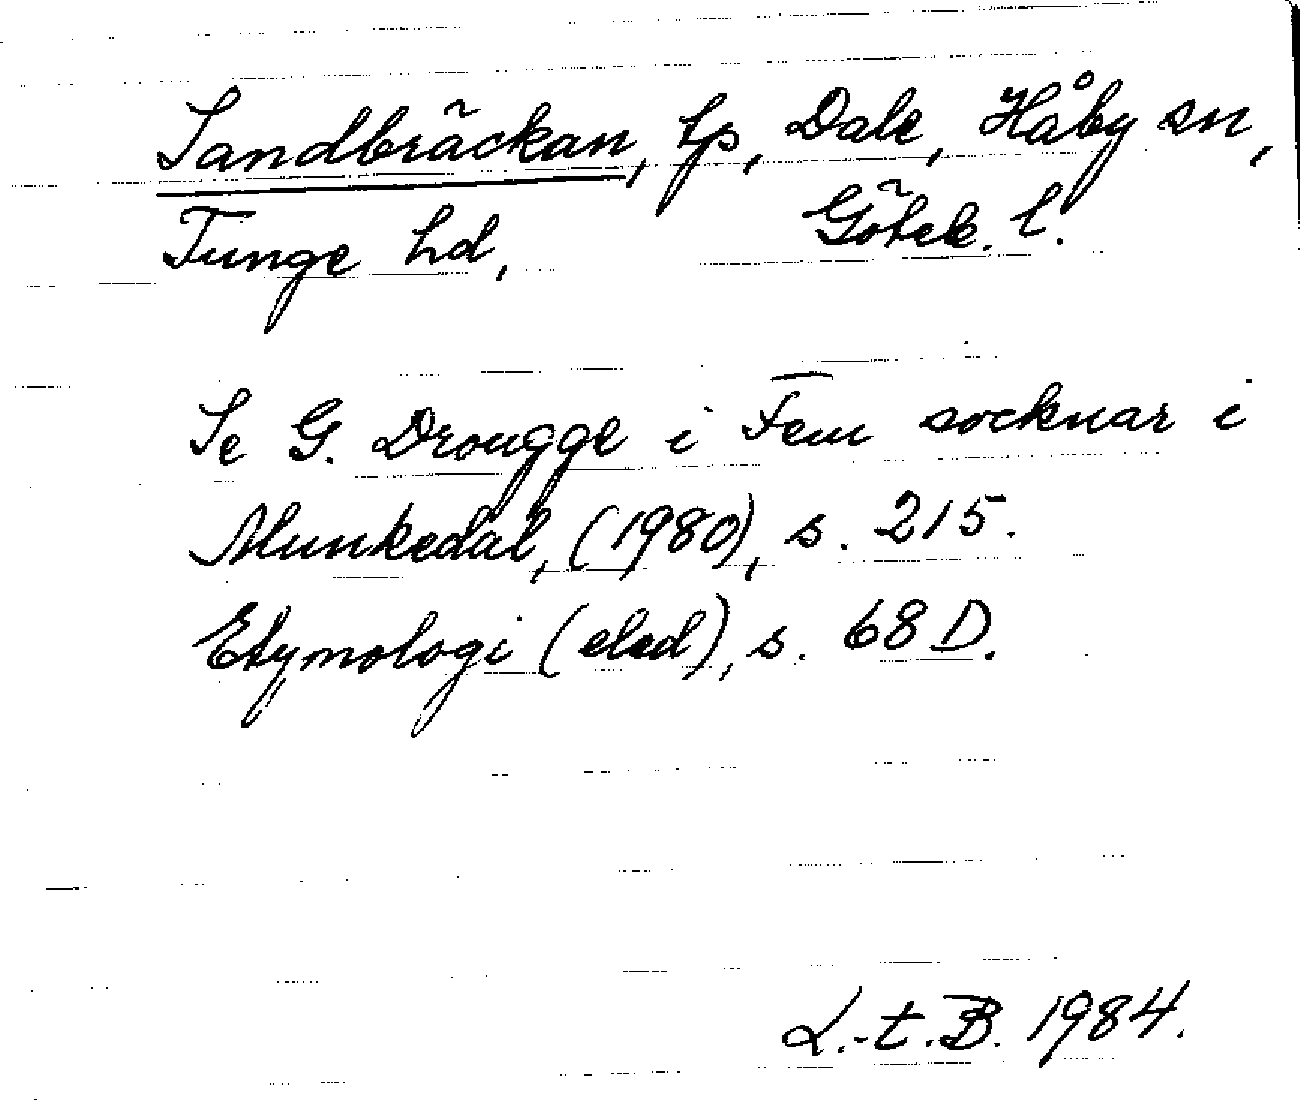 Sandbräckan, tp, Dale, Håby sn,
Tunge hd, Göteb. l.
Se G. Drougge i Fem socknar i
Munkedal, (1980), s. 215.
Etymologi (eled), s. 68 D.
L.-t. B. 1984.